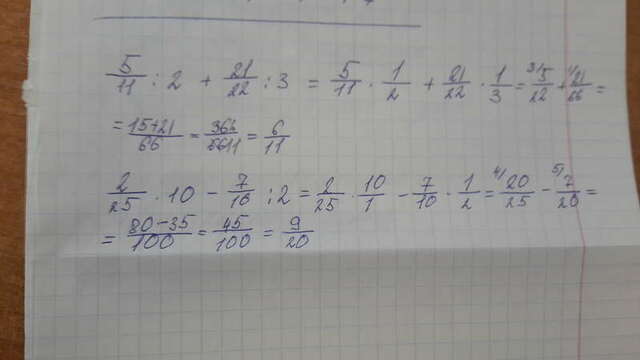 5/11 : 2 + 21/22 : 3 = 5/11 · 1/2 + 21/22 · 1/3 = 3/ 5/22 + 1/ 21/66 =
= 15+21/66 = 36 6/66 11 = 6/11
2/25 · 10 − 7/10 : 2 = 2/25 · 10/1 − 7/10 · 1/2 = 4/ 20/25 − 5/ 7/20 =
= 80−35/100 = 45/100 = 9/20